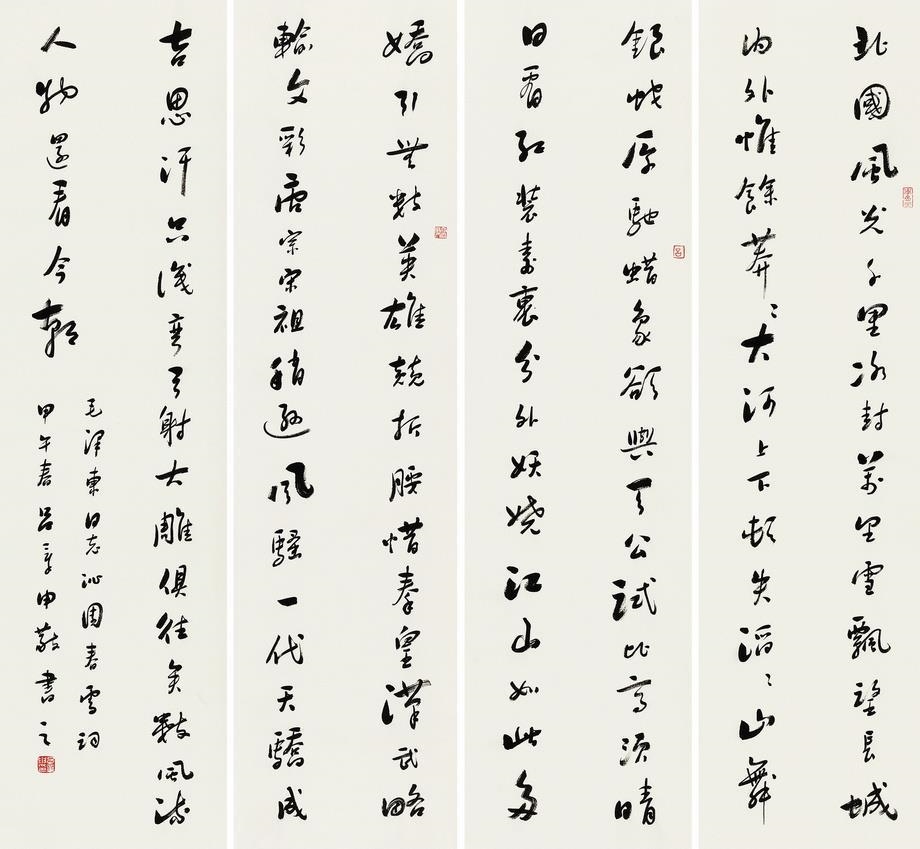 北國風光千里冰封萬里雪飄望長城
内外惟餘莽〻大河上下頓失滔〻山舞
銀蛇原馳蜡象欲與天公試比高須晴
日看紅裝素裹分外妖嬈江山如此多
嬌引無數英雄競折腰惜秦皇漢武略
輸文彩唐宗宋祖稍遜風騷一代天驕成
吉思汗只識彎弓射大雕俱往矣數風流
人物還看今朝
毛澤東同志沁園春雪詞
甲午春呂章申敬書之